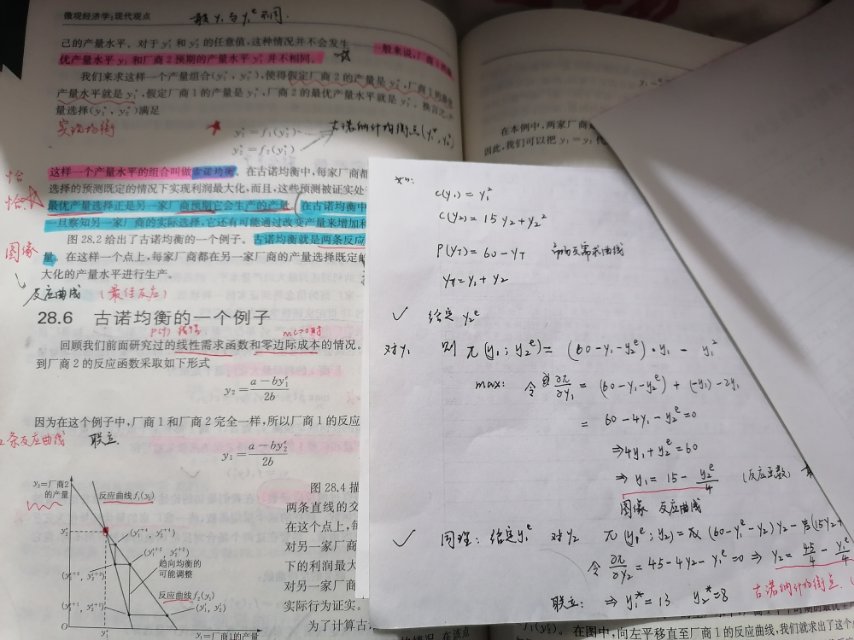 微观经济学:现代观点
己的产量水平。对于 y₁ᵉ 和 y₂ᵉ 的任意值,这种情况并不会发生
一般来说,厂商1的最
优产量水平 y₁ 和厂商2预期的产量水平 y₁ᵉ 并不相同。
我们来求这样一个产量组合(y₁*, y₂*),使得假定厂商2的产量是 y₂*,厂商1的最优
产量水平就是 y₁*,假定厂商1的产量是 y₁*,厂商2的最优产量水平就是 y₂*。换言之,
量选择(y₁*, y₂*)满足
实现均衡
y₁* = f₁(y₂*)
y₂* = f₂(y₁*)
古诺纳什均衡点(y₁*, y₂*)
这样一个产量水平的组合叫做古诺均衡。在古诺均衡中,每家厂商都
选择的预测既定的情况下实现利润最大化,而且,这些预测被证实处
最优产量选择正是另一家厂商预期它会生产的产量。在古诺均衡中
一旦察知另一家厂商的实际选择,它还有可能通过改变产量来增加利
图像
图28.2给出了古诺均衡的一个例子。古诺均衡就是两条反应
量。在这样一个点上,每家厂商都在另一家厂商的产量选择既定的
大化的产量水平进行生产。
反应曲线 (最佳反应)
28.6 古诺均衡的一个例子
回顾我们前面研究过的线性需求函数和零边际成本的情况。
到厂商2的反应函数采取如下形式
y₂ = (a−by₁ᵉ)/2b
因为在这个例子中,厂商1和厂商2完全一样,所以厂商1的反应
条反应曲线 联立
y₁ = (a−by₂ᵉ)/2b
y₂=厂商2
的产量
反应曲线 f₁(y₂)
趋向均衡的
可能调整
反应曲线 f₂(y₁)
y₁=厂商1的产量
图28.4描
两条直线的交
在这个点上,每
对另一家厂商
下的利润最大
对另一家厂
实际行为证实。
为了计算古
在本例中,两家厂商
因此,我们可以把 y₁ = y₂ 代
C(y₁) = y₁²
C(y₂) = 15y₂+y₂²
P(y_T) = 60−y_T 需求曲线
y_T = y₁+y₂
✓ 给定 y₂ᵉ
对y₁ 则 π(y₁; y₂ᵉ) = (60−y₁−y₂ᵉ)·y₁ − y₁²
max: 令 ∂π/∂y₁ = (60−y₁−y₂ᵉ) + (−y₁) − 2y₁
= 60−4y₁−y₂ᵉ=0
⇒ 4y₁+y₂ᵉ=60
⇒ y₁ = 15 − y₂ᵉ/4 (反应函数)
图像 反应曲线
✓ 同理: 给定y₁ᵉ 对y₂ π(y₁ᵉ; y₂) = (60−y₁ᵉ−y₂)y₂ − (15y₂+
令 ∂π/∂y₂ = 45−4y₂−y₁ᵉ=0 ⇒ y₂ = 45/4 − y₁ᵉ/4
古诺纳什均衡点
联立: ⇒ y₁*=13 y₂*=8
在图中,向左平移直至厂商1的反应曲线,我们就求出了这个